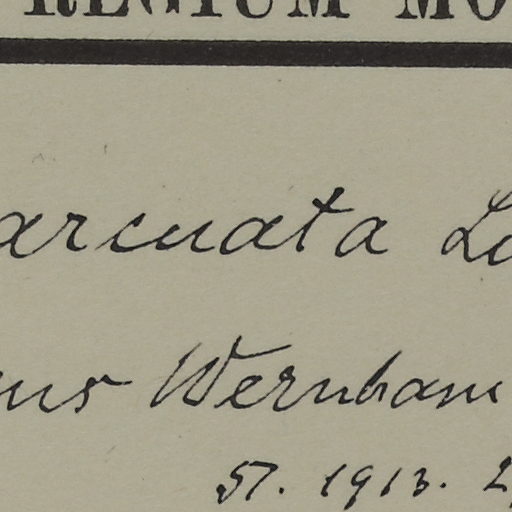 REGIUM MO
arcuata La
us Wernham
51. 1913. 2